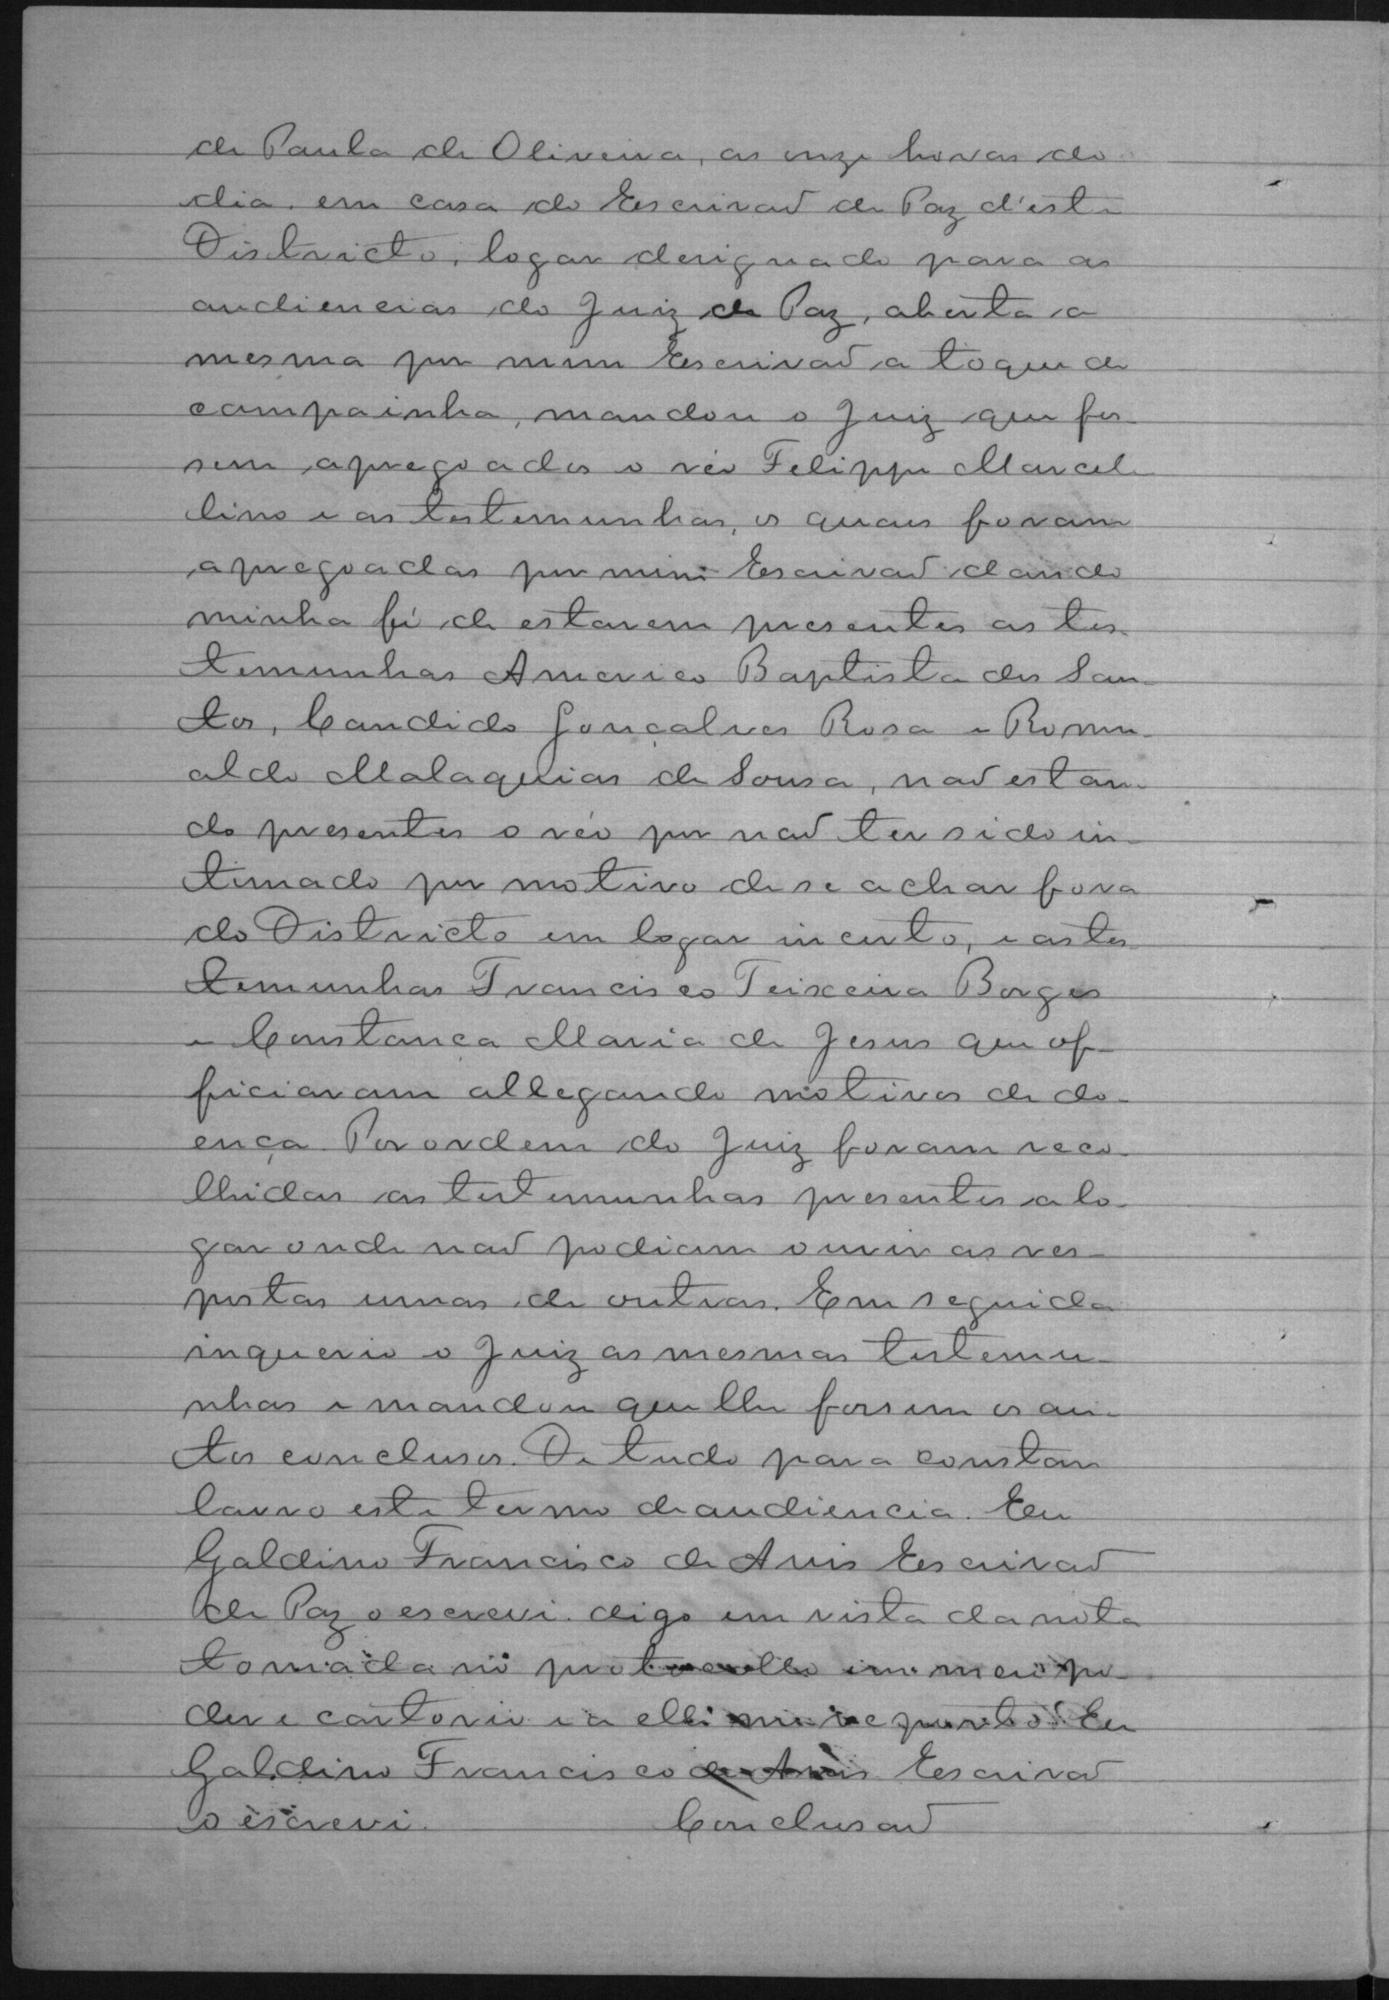 de Paula de Oliveira, as onze horas do
dia. em casa do Escrivaõ de Paz d'este
Districto, logar designado para as
audiencias do Juiz de Paz, aberta a
mesma por mim Escrivaõ a toque de
campainha, mandou o Juiz que fos-
sem apregoados o réo Felippe Marcel-
lino e as testemunhas, os quaes foram
apregoadas por mim Escrivaõ dando
minha fé de estarem presentes as tes-
temunhas Americo Baptista dos San-
tos, Candido Gonçalves Rosa e Romu-
aldo Malaquias de Sousa, naõ estan-
do presentes o réo por naõ ter sido in-
timado por motivo de se achar fora
do Districto em logar incerto, e as tes-
temunhas Francisco Teixeira Borges
e Constança Maria de Jesus que of-
ficiaram allegando motivos de do-
ença. Por ordem do Juiz foram reco-
lhidas as testemunhas presentes a lo-
gar onde naõ podiam ouvir as res-
postas umas de outras. Em seguida
inquerio o Juiz as mesmas testemu-
nhas e mandou que lhe fossem os au-
tos conclusos. De tudo para constar
lavro este termo de audiencia. Eu
Galdino Francisco de Assis Escrivaõ
de Paz o escrevi. digo em vista da nota
tomada no protocollo em meu po-
der e cartorio e a elle me reporto. Eu
Galdino Francisco de Assis Escrivaõ
o escrevi. Conclusaõ